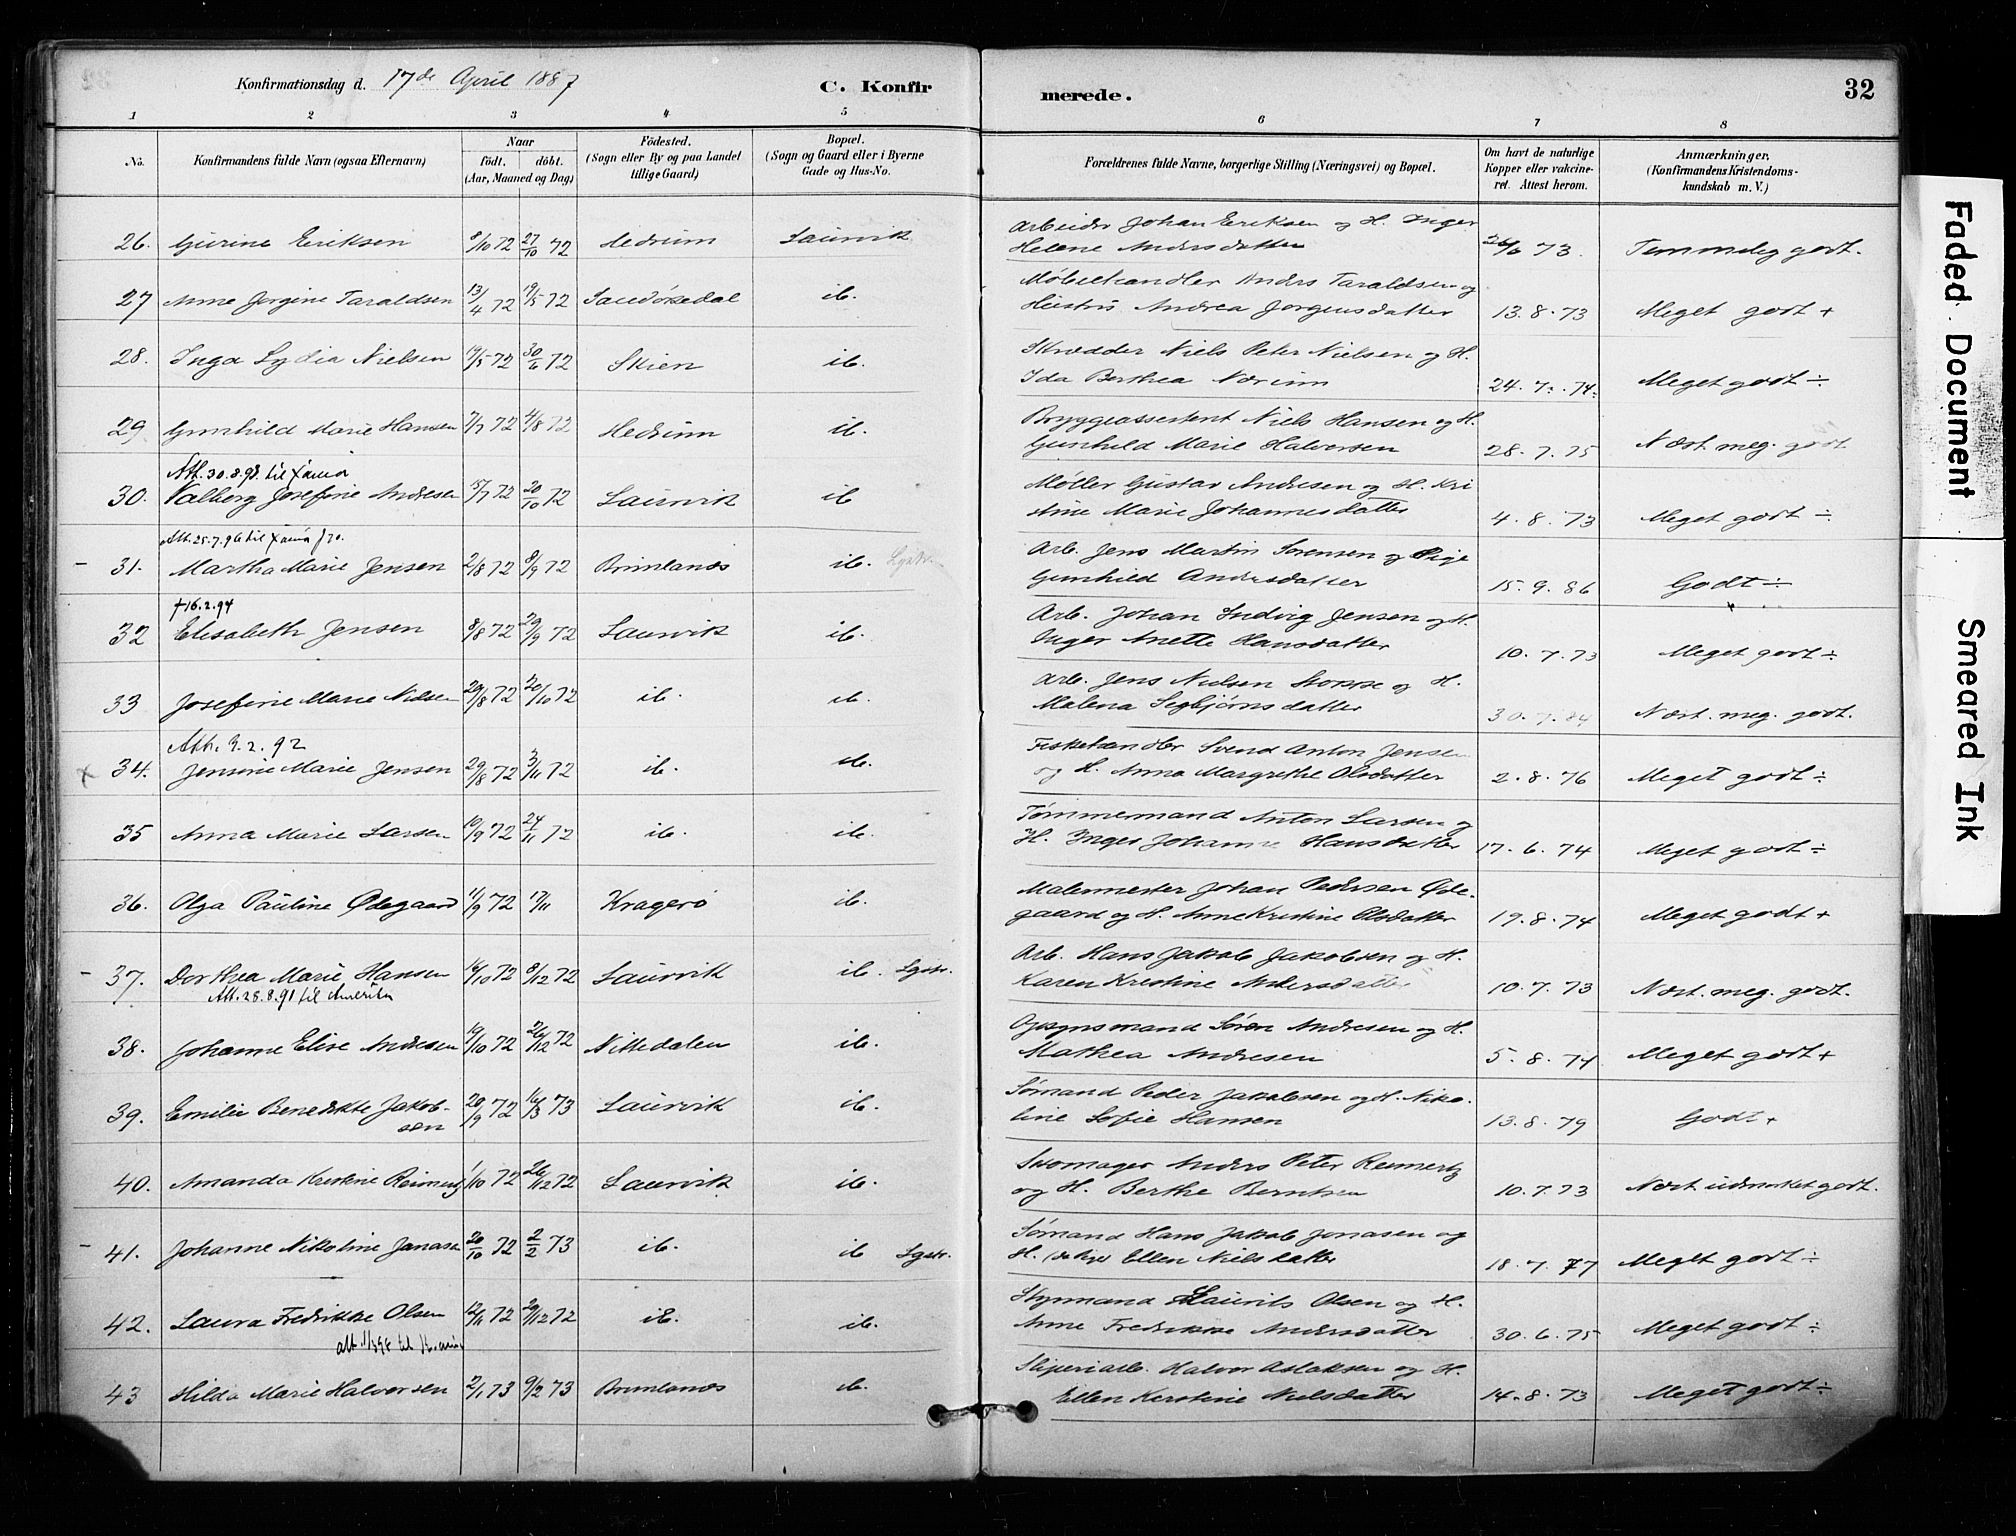 Konfirmationsdag d. 17de April 1887
C. Konfir merede.
32
1 2 3 4 5 6 7 8
No. Konfirmandens fulde Navn (ogsaa Efternavn) Naar födt. döbt. (Aar, Maaned og Dag) Födested. (Sogn eller By og paa Landet tillige Gaard) Bopæl. (Sogn og Gaard eller i Byerne Gade og Hus-No. Forældrenes fulde Navne, borgerlige Stilling (Næringsvei) og Bopæl. Om havt de naturlige Kopper eller vakcineret. Attest herom. Anmærkninger. (Konfirmandens Kristendomskundskab m. V.)
26. Gurine Eriksen 8/10 72 27/10 72 Hedrum Laurvik Arbeider Johan Eriksen og H. Inger
Helene Andersdatter 26/6 73. Temmelig godt.
27 Anne Jorgine Taraldsen 13/4 72 19/5 72 Sandøkedal ib. Møbelhandler Anders Taraldsen og
Hustru Andrea Jorgensdatter 13.8.73 Meget godt +
28. Inga Lydia Nielsen 19/5 72 30/6 72 Skien ib. Skrædder Niels Peter Nielsen og H.
Ida Berthea Nærum 24.7.74. Meget godt ÷
29 Gunhild Marie Hansen 7/7 72 4/8 72 Hedrum ib. Bryggeassistent Niels Hansen og H.
Gunhild Marie Halvorsen 28.7.75 Næst. meg. godt
Att. 30.8.98. til Xania
30. Valborg Josefine Andresen 5/7 72 20/10 72 Laurvik ib Møller Gustav Andresen og H. Kri
stine Marie Johannesdatter 4.8.73 Meget godt ÷
Att. 25.7.96 til Xania
31. Martha Marie Jensen 2/8 72 8/9 72 Brunlanæs ib. Arb. Jens Martin Sørensen og Pige
Gunhild Andersdatter 15.9.86 Godt ÷
+16.2.94
32 Elisabeth Jensen 8/8 72 29/9 72 Laurvik ib. Arb. Johan Ludvig Jensen og H.
Inger Anette Hansdatter 10.7.73 Meget godt ÷
33 Josefine Marie Nilsen 29/8 72 20/10 72 ib. ib. Arb. Jens Nielsen Stokke og H.
Malena Segbjørnsdatter 30.7.84 Næst. meg. godt.
Att. 9.2.92
x 34. Jensine Marie Jensen 29/8 72 3/11 72 ib. ib. Fiskehandler Svend Anton Jensen
og H. Anna Margrethe Olsdatter 2.8.76 Meget godt ÷
35 Anna Marie Larsen 19/9 72 24/11 72 ib. ib. Tømmermand Anton Larsen og
H. Inger Johanne Hansdatter 17.6.74 Meget godt ÷
36. Olga Pauline Ødegaard 11/9 72 17/11 Kragerø ib. Malermester Johan Pedersen Øde-
gaard og H. Anne Kristine Olsdatter 19.8.74 Meget godt +
37. Dorthea Marie Hansen 16/10 72 8/12 72 Laurvik ib. Lgstr. Arb. Hans Jakob Jakobsen og H.
Att. 28.8.91 til Amerika
Karen Kristine Andersdatter 10.7.73 Næst. meg. godt.
38. Johanne Elise Andresen 19/10 72 26/12 72 Nittedalen ib. Opsynsmand Søren Andresen og H.
Mathea Andresen 5.8.74 Meget godt +
39. Emilie Benedikte Jakob-
sen 20/9 72 16/3 73 Laurvik ib. Sømand Peder Jakobsen og H. Niko-
line Sofie Hansen 13.8.79 Godt +
40. Amanda Kristine Reimertz 1/10 72 26/12 72 Laurvik ib. Skomager Anders Peter Reimertz
og H. Berthe Berntsen 10.7.73 Næst udmerket godt.
41. Johanne Nikoline Jonasen 20/10 72 2/2 73 ib. ib Lgstr. Sømand Hans Jakob Jonasen og
H. Ellen Nielsdatter 18.7.77 Meget godt ÷
42. Laura Fredrikke Olsen 12/11 72 29/12 72 ib. ib. Styrmand Laurits Olsen og H.
Anne Fredrikke Andersdatter 30.6.75 Meget godt ÷
43 Hilda Marie Halvorsen 2/1 73 9/2 73 Brunlanæs ib. Sliperiarb. Halvor Aslaksen og H.
Ellen Kirstine Nielsdatter 14.8.73 Meget godt ÷
Faded Document
Smeared Ink